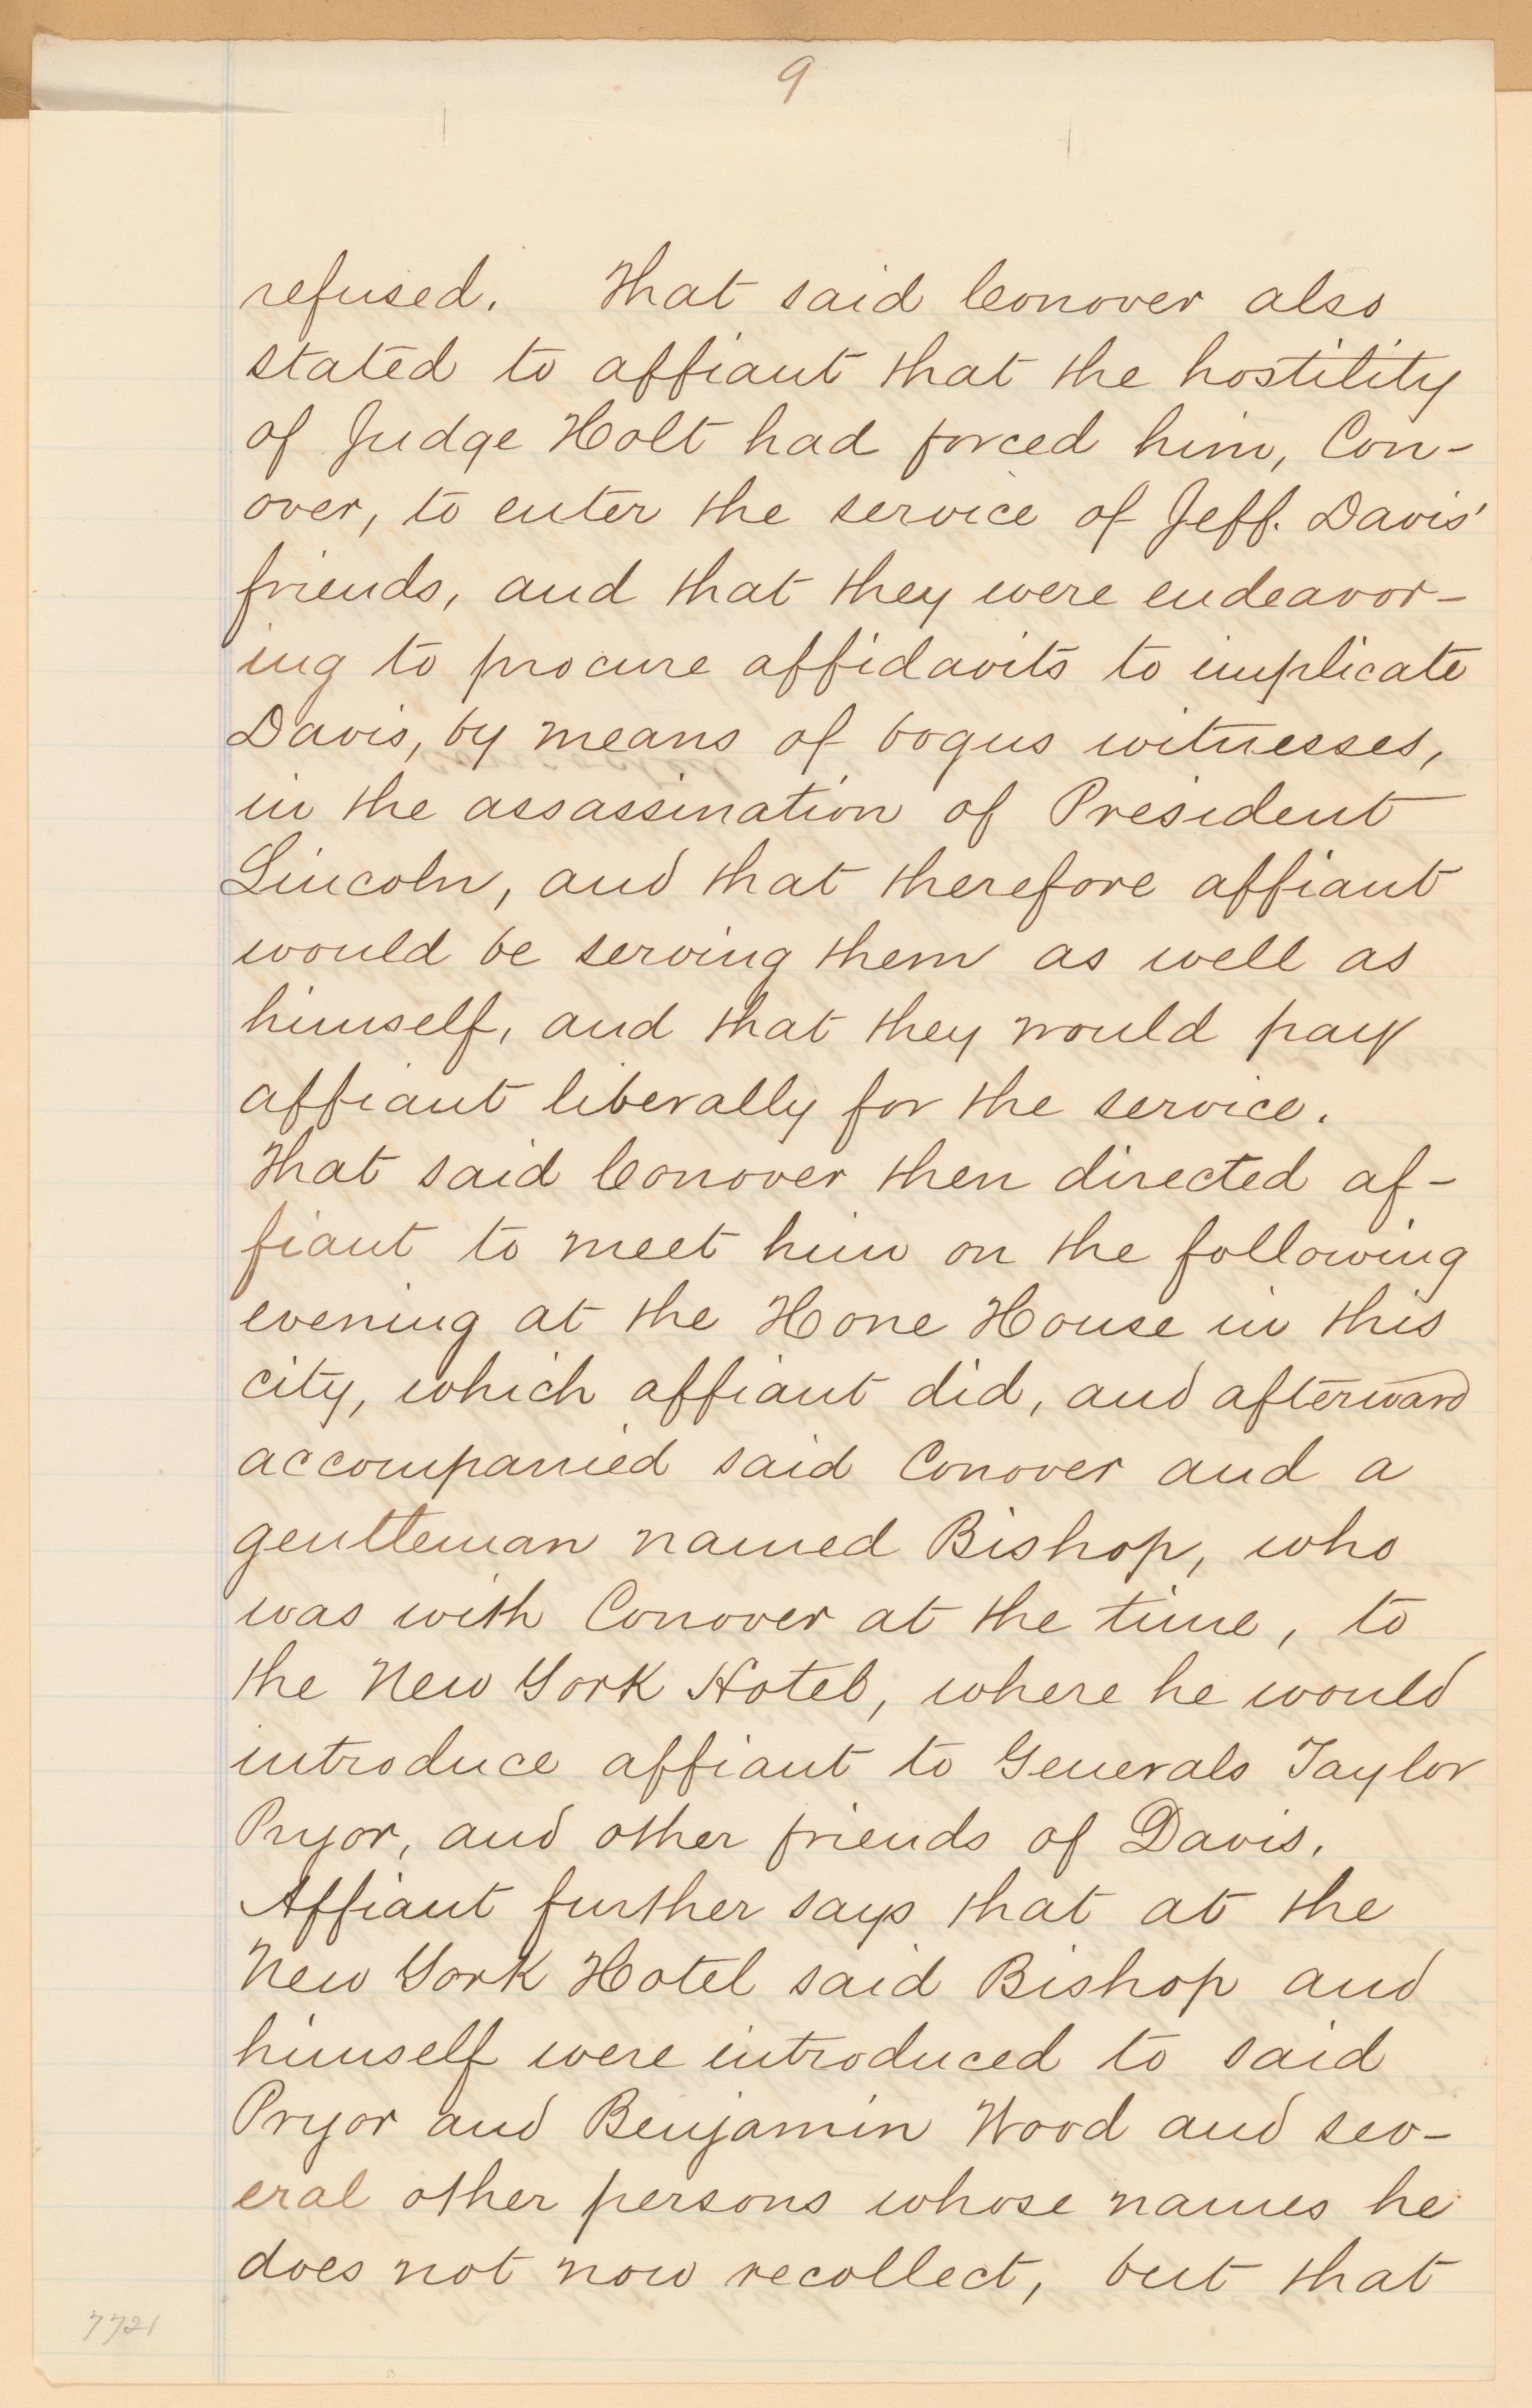 9
refused. That said Conover also
stated to affiant that the hostility
of Judge Holt had forced him, Con-
over, to enter the service of Jeff. Davis'
friends, and that they were endeavor-
ing to procure affidavits to implicate
Davis, by means of bogus witnesses,
in the assassination of President
Lincoln, and that therefore affiant
would be serving them as well as
himself, and that they would pay
affiant liberally for the service.
That said Conover then directed af-
fiant to meet him on the following
evening at the Hone House in this
city, which affiant did, and afterward
accompanied said Conover and a
gentleman named Bishop, who
was with Conover at the time, to
the New York Hotel, where he would
introduce affiant to Generals Taylor
Pryor, and other friends of Davis.
Affiant further says that at the
New York Hotel said Bishop and
himself were introduced to said
Pryor and Benjamin Wood and sev-
eral other persons whose names he
does not now recollect, but that
7721